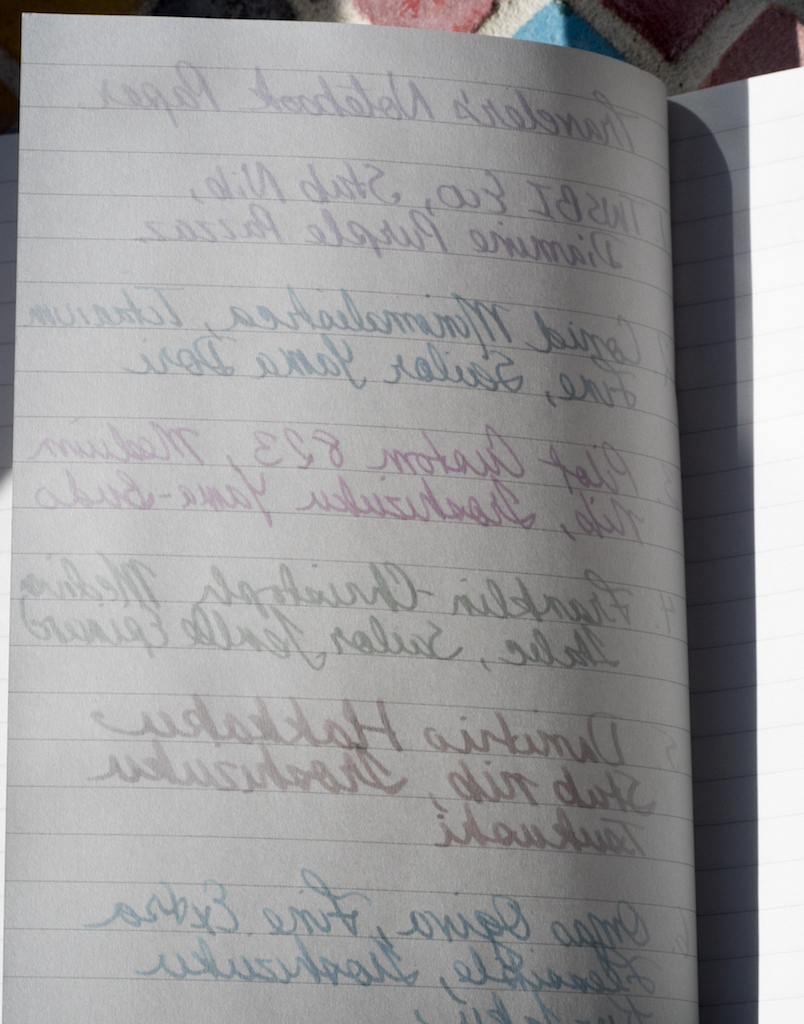 Traveler's Notebook Paper
1. TWSBI Eco, Stub Nib,
Diamine Purple Pazzaz
2. Conid Minimalistica, Titanium
Fine, Sailor Yama Dori
3. Pilot Custom 823, Medium
Nib, Iroshizuku Yama-Budo
4. Franklin-Christoph Medium
Italic, Sailor Jentle Epinard
5. Danitrio Hakkaku
Stub nib, Iroshizuku
Tsukushi
6. Omas Ogiva, Fine Extra
Flessibile, Iroshizuku